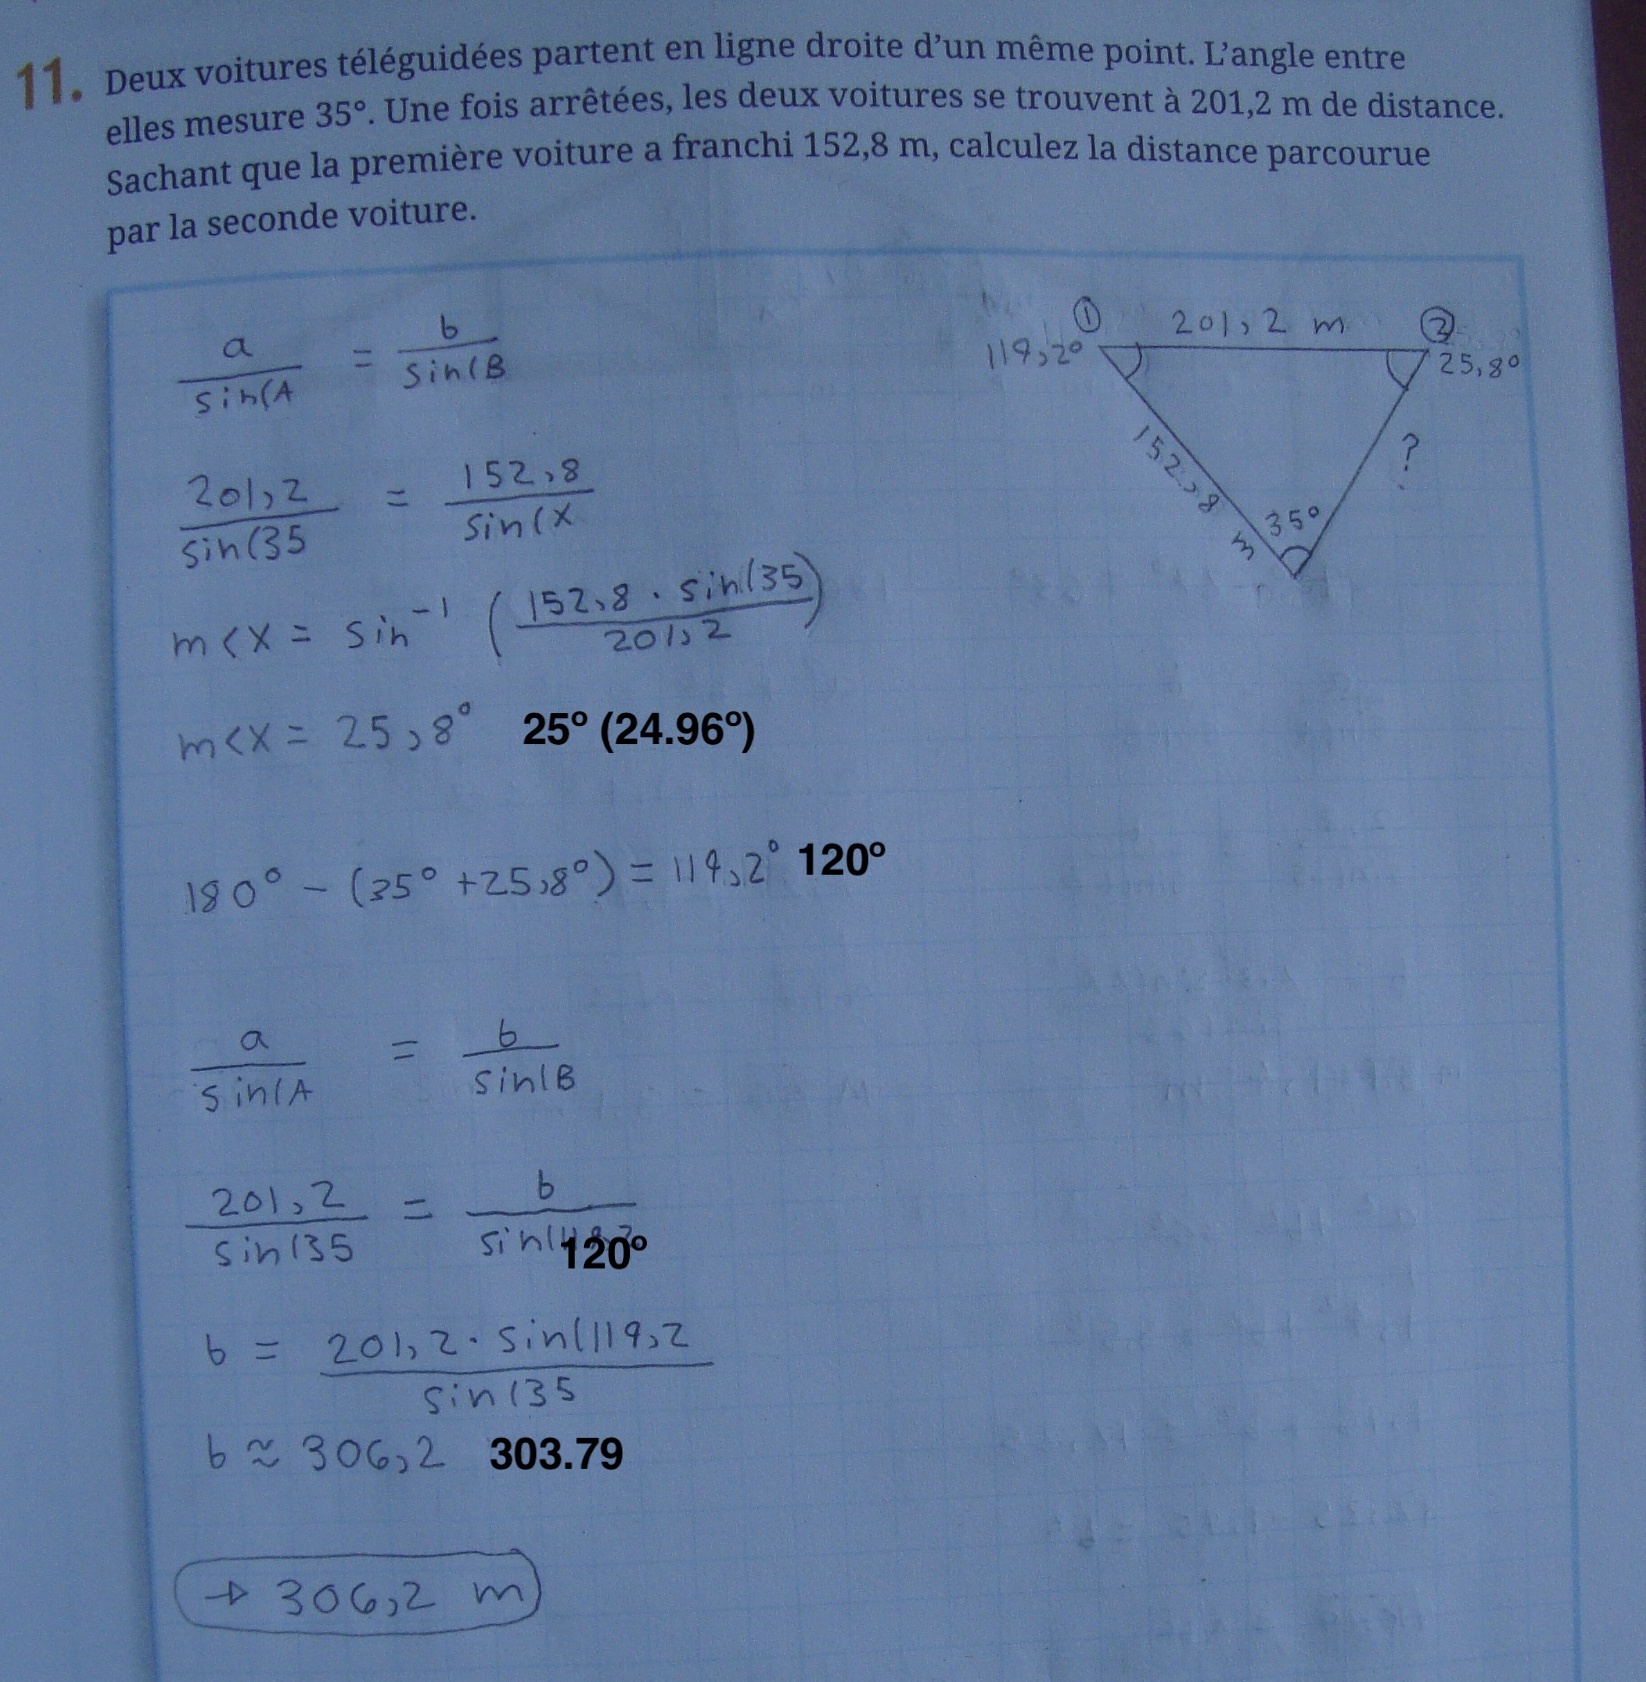 11. Deux voitures téléguidées partent en ligne droite d'un même point. L'angle entre
elles mesure 35°. Une fois arrêtées, les deux voitures se trouvent à 201,2 m de distance.
Sachant que la première voiture a franchi 152,8 m, calculez la distance parcourue
par la seconde voiture.
a / sin(A = b / sin(B
① 201,2 m ②
119,2° 25,8°
152,8 m
?
35°
201,2 / sin(35 = 152,8 / sin(X
m<X = sin⁻¹ (152,8 · sin(35 / 201,2)
m<X = 25,8° 25º (24.96º)
180° - (35° + 25,8°) = 119,2° 120º
a / sin(A = b / sin(B
201,2 / sin(35 = b / sin( 120º
b = 201,2 · sin(119,2 / sin(35
b ≈ 306,2 303.79
→ 306,2 m